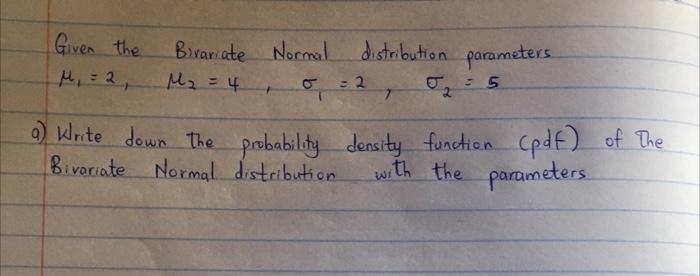 Given the Bivariate Normal distribution parameters
μ₁ = 2, μ₂ = 4, σ₁ = 2, σ₂ = 5
a) Write down the probability density function (pdf) of The
Bivariate Normal distribution with the parameters